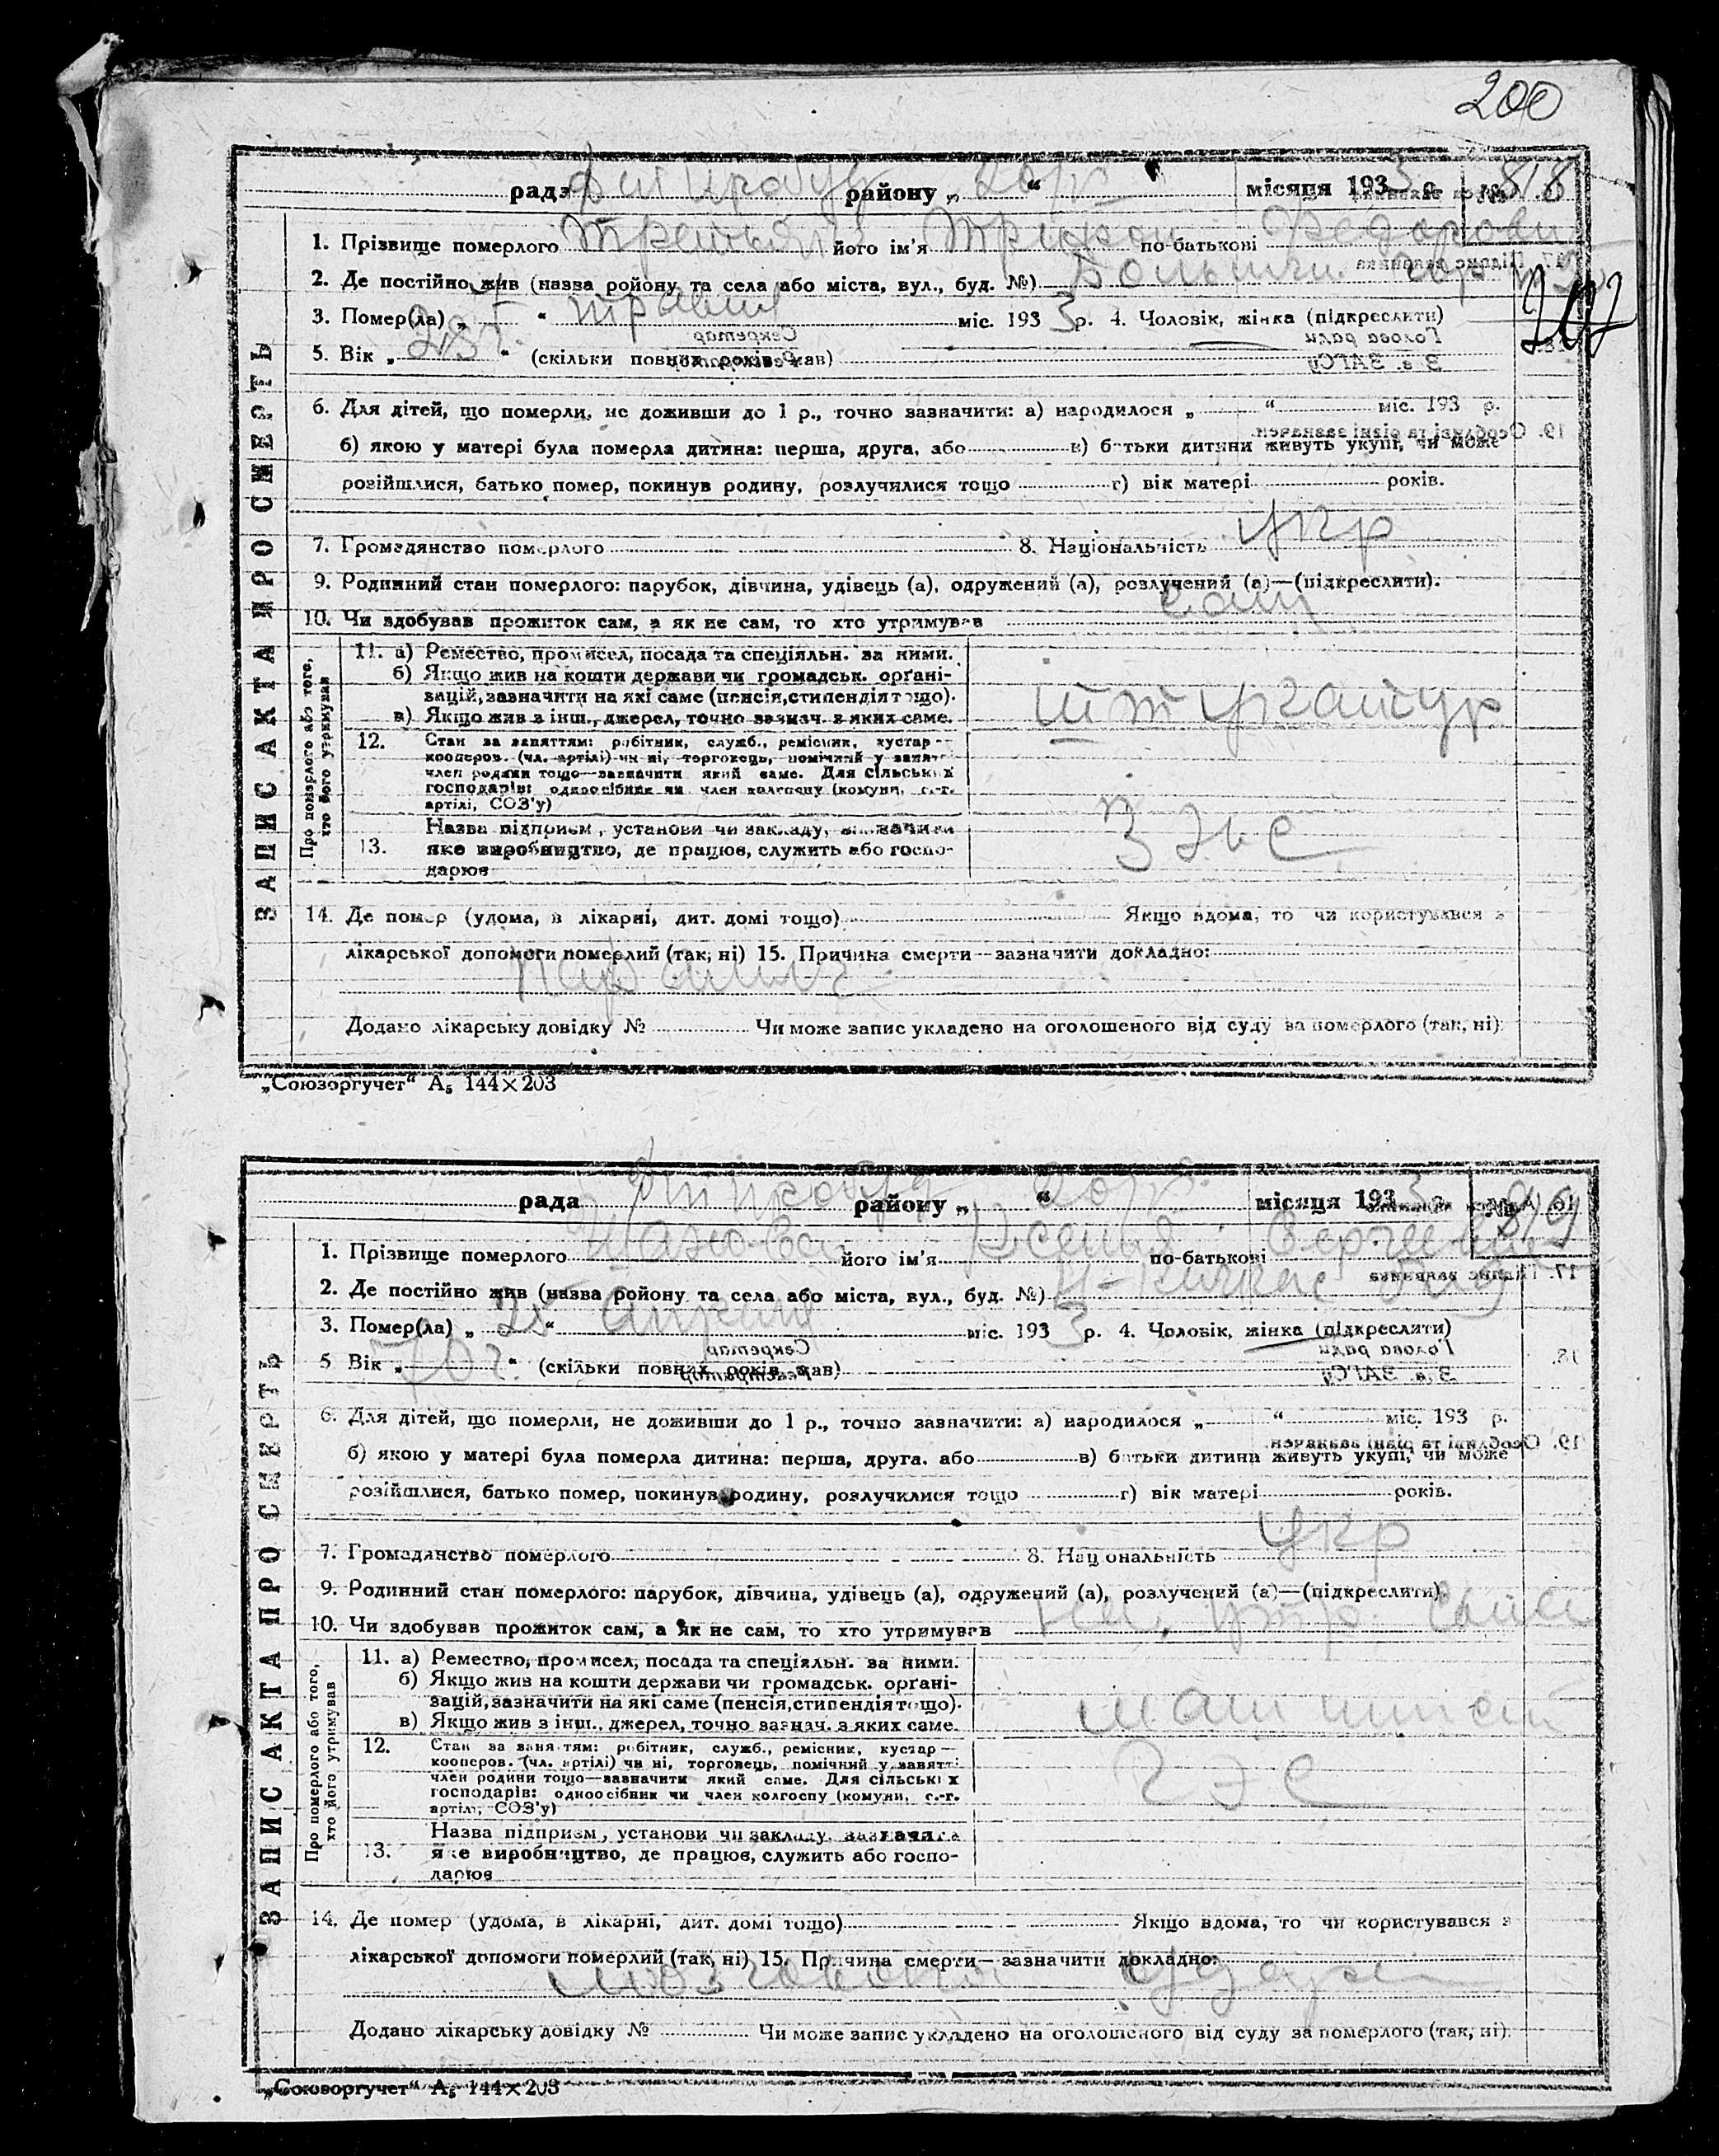 200
рада району „ 20/V “ місяця 1933 р. № 818
1. Прізвище померлого його ім'я Трифон по-батькові Федорович
2. Де постійно жив (назва ройону та села або міста, вул., буд. №)
3. Помер(ла) „ “ травня міс. 1933 р. 4. Чоловік, жінка (підкреслити)
207
5. Вік „ 23 г. “ (скільки повних років мав)
6. Для дітей, що померли, не доживши до 1 р., точно зазначити: а) народилося „ “ міс. 193 р.
б) якою у матері була померла дитина: перша, друга, або в) батьки дитини живуть укупі, чи може
розійшлися, батько помер, покинув родину, розлучилися тощо г) вік матері років.
7. Громадянство померлого 8. Національність укр
9. Родинний стан померлого: парубок, дівчина, удівець (а), одружений (а), розлучений (а)—(підкреслити).
10. Чи здобував прожиток сам, а як не сам, то хто утримував сам
ЗАПИС АКТА ПРО СМЕРТЬ
Про померлого або того, хто його утримував
11. а) Ремество, промисел, посада та спеціяльн. за ними.
б) Якщо жив на кошти держави чи громадськ. орґані-
зацій, зазначити на які саме (пенсія, стипендія тощо).
в) Якщо жив з інш., джерел, точно зазнач. з яких саме.
штукатур
12. Стан за заняттям: робітник, служб., ремісник, кустар—
кооперов. (чл. артілі) чи ні, торговець, помічний у занятті
член родини тощо—зазначити який саме. Для сільських
господарів: одноосібник чи член колгоспу (комуни, с.-г.
артілі, СОЗ'у)
13. Назва підприєм, установи чи закладу, зазначити
яке виробництво, де працює, служить або госпо-
дарює
14. Де помер (удома, в лікарні, дит. домі тощо) Якщо вдома, то чи користувався з
лікарської допомоги померлий (так, ні) 15. Причина смерти—зазначити докладно:
Додано лікарську довідку № Чи може запис укладено на оголошеного від суду за померлого (так, ні)
„Союзоргучет“ А5 144×203
рада району „ 20/V “ місяця 1933 р. № 819
1. Прізвище померлого його ім'я Ксенья по-батькові Сергеевна
2. Де постійно жив (назва ройону та села або міста, вул., буд. №) Кичкас
3. Помер(ла) „ 25 “ апреля міс. 1933 р. 4. Чоловік, жінка (підкреслити)
5 Вік „ 70 г. “ (скільки повних років мав)
6. Для дітей, що померли, не доживши до 1 р., точно зазначити: а) народилося „ “ міс. 193 р.
б) якою у матері була померла дитина: перша, друга. або в) батьки дитини живуть укупі, чи може
розійшлися, батько помер, покинув родину, розлучилися тощо г) вік матері років.
7. Громадянство померлого 8. Національність укр
9. Родинний стан померлого: парубок, дівчина, удівець (а), одружений (а), розлучений (а)—(підкреслити)
10. Чи здобував прожиток сам, а як не сам, то хто утримував
ЗАПИС АКТА ПРО СМЕРТЬ
Про померлого або того, хто його утримував
11. а) Ремество, промисел, посада та спеціяльн. за ними.
б) Якщо жив на кошти держави чи громадськ. орґані-
зацій, зазначити на які саме (пенсія, стипендія тощо).
в) Якщо жив з інш., джерел, точно зазнач. з яких саме.
12. Стан за заняттям: робітник, служб., ремісник, кустар—
кооперов. (чл. артілі) чи ні, торговець, помічний у занятті
член родини тощо—зазначити який саме. Для сільських
господарів: одноосібник чи член колгоспу (комуни, с.-г.
артілі, СОЗ'у)
ГЭС
13. Назва підприєм, установи чи закладу, зазначити
яке виробництво, де працює, служить або госпо-
дарює
14. Де помер (удома, в лікарні, дит. домі тощо) Якщо вдома, то чи користувався з
лікарської допомоги померлий (так, ні) 15. Причина смерти—зазначити докладно:
мозговой удар
Додано лікарську довідку № Чи може запис укладено на оголошеного від суду за померлого (так, ні)
„Союзоргучет“ А5 144×203